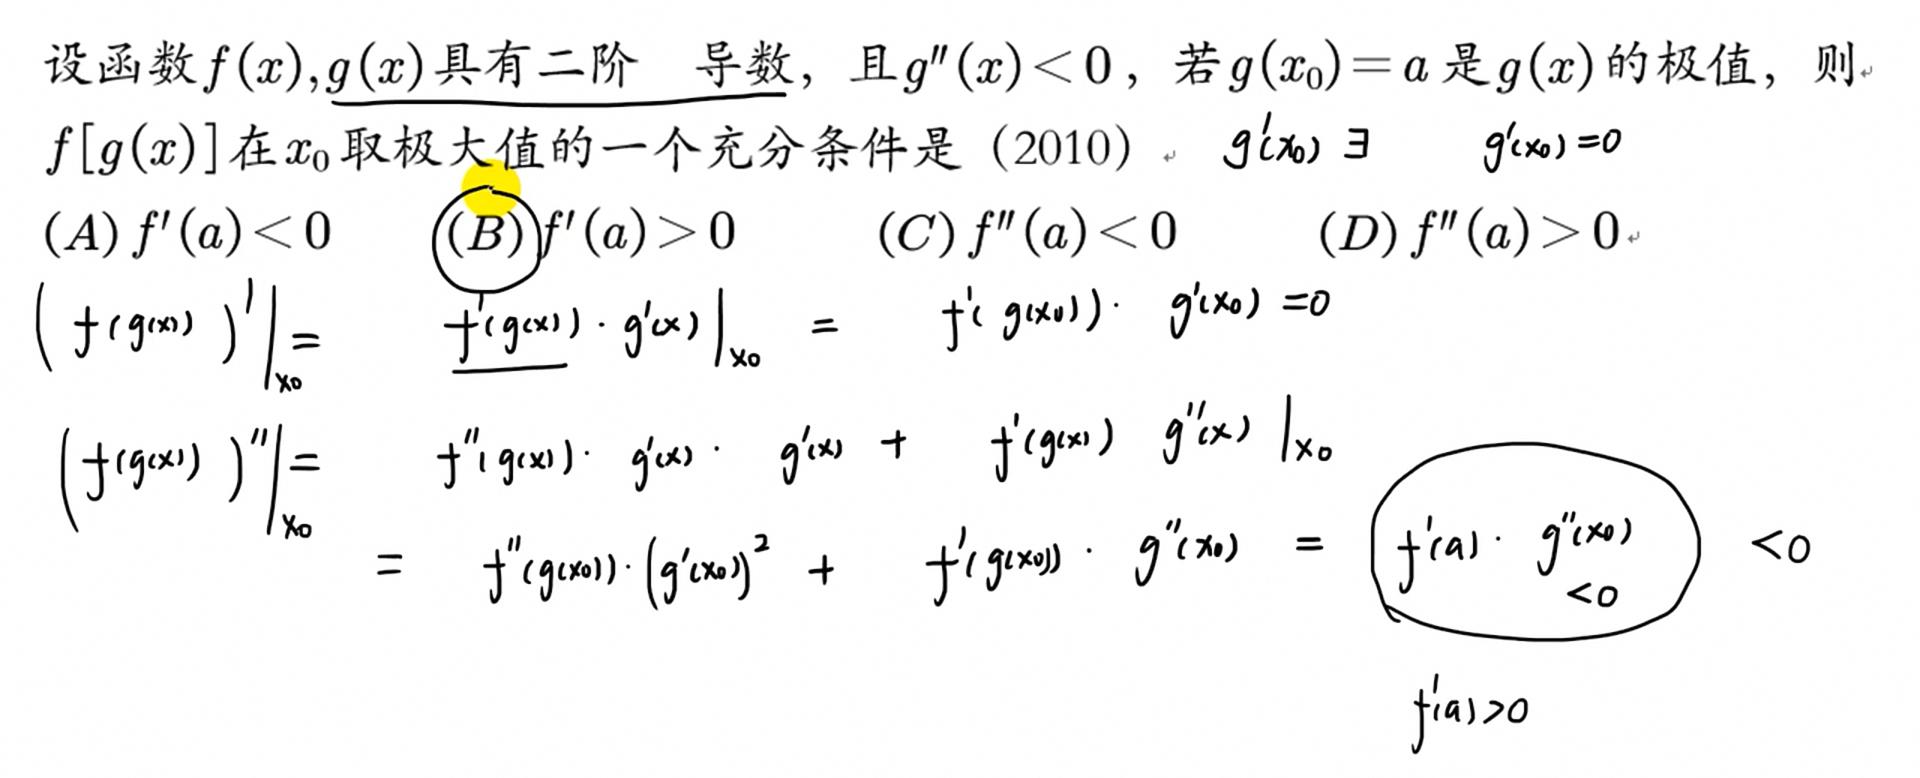 设函数f(x),g(x)具有二阶 导数，且g″(x)<0，若g(x₀)=a是g(x)的极值，则
f[g(x)]在x₀取极大值的一个充分条件是（2010） g'(x₀) ∃ g'(x₀)=0
(A) f′(a)<0 (B) f′(a)>0 (C) f″(a)<0 (D) f″(a)>0
(f(g(x)))'|x₀ = f'(g(x))·g'(x)|x₀ = f'(g(x₀))· g'(x₀)=0
(f(g(x)))''|x₀ = f''(g(x))· g'(x)· g'(x) + f'(g(x)) g''(x)|x₀
= f''(g(x₀))·(g'(x₀))² + f'(g(x₀))· g''(x₀) = f'(a)· g''(x₀) <0
<0
f'(a)>0